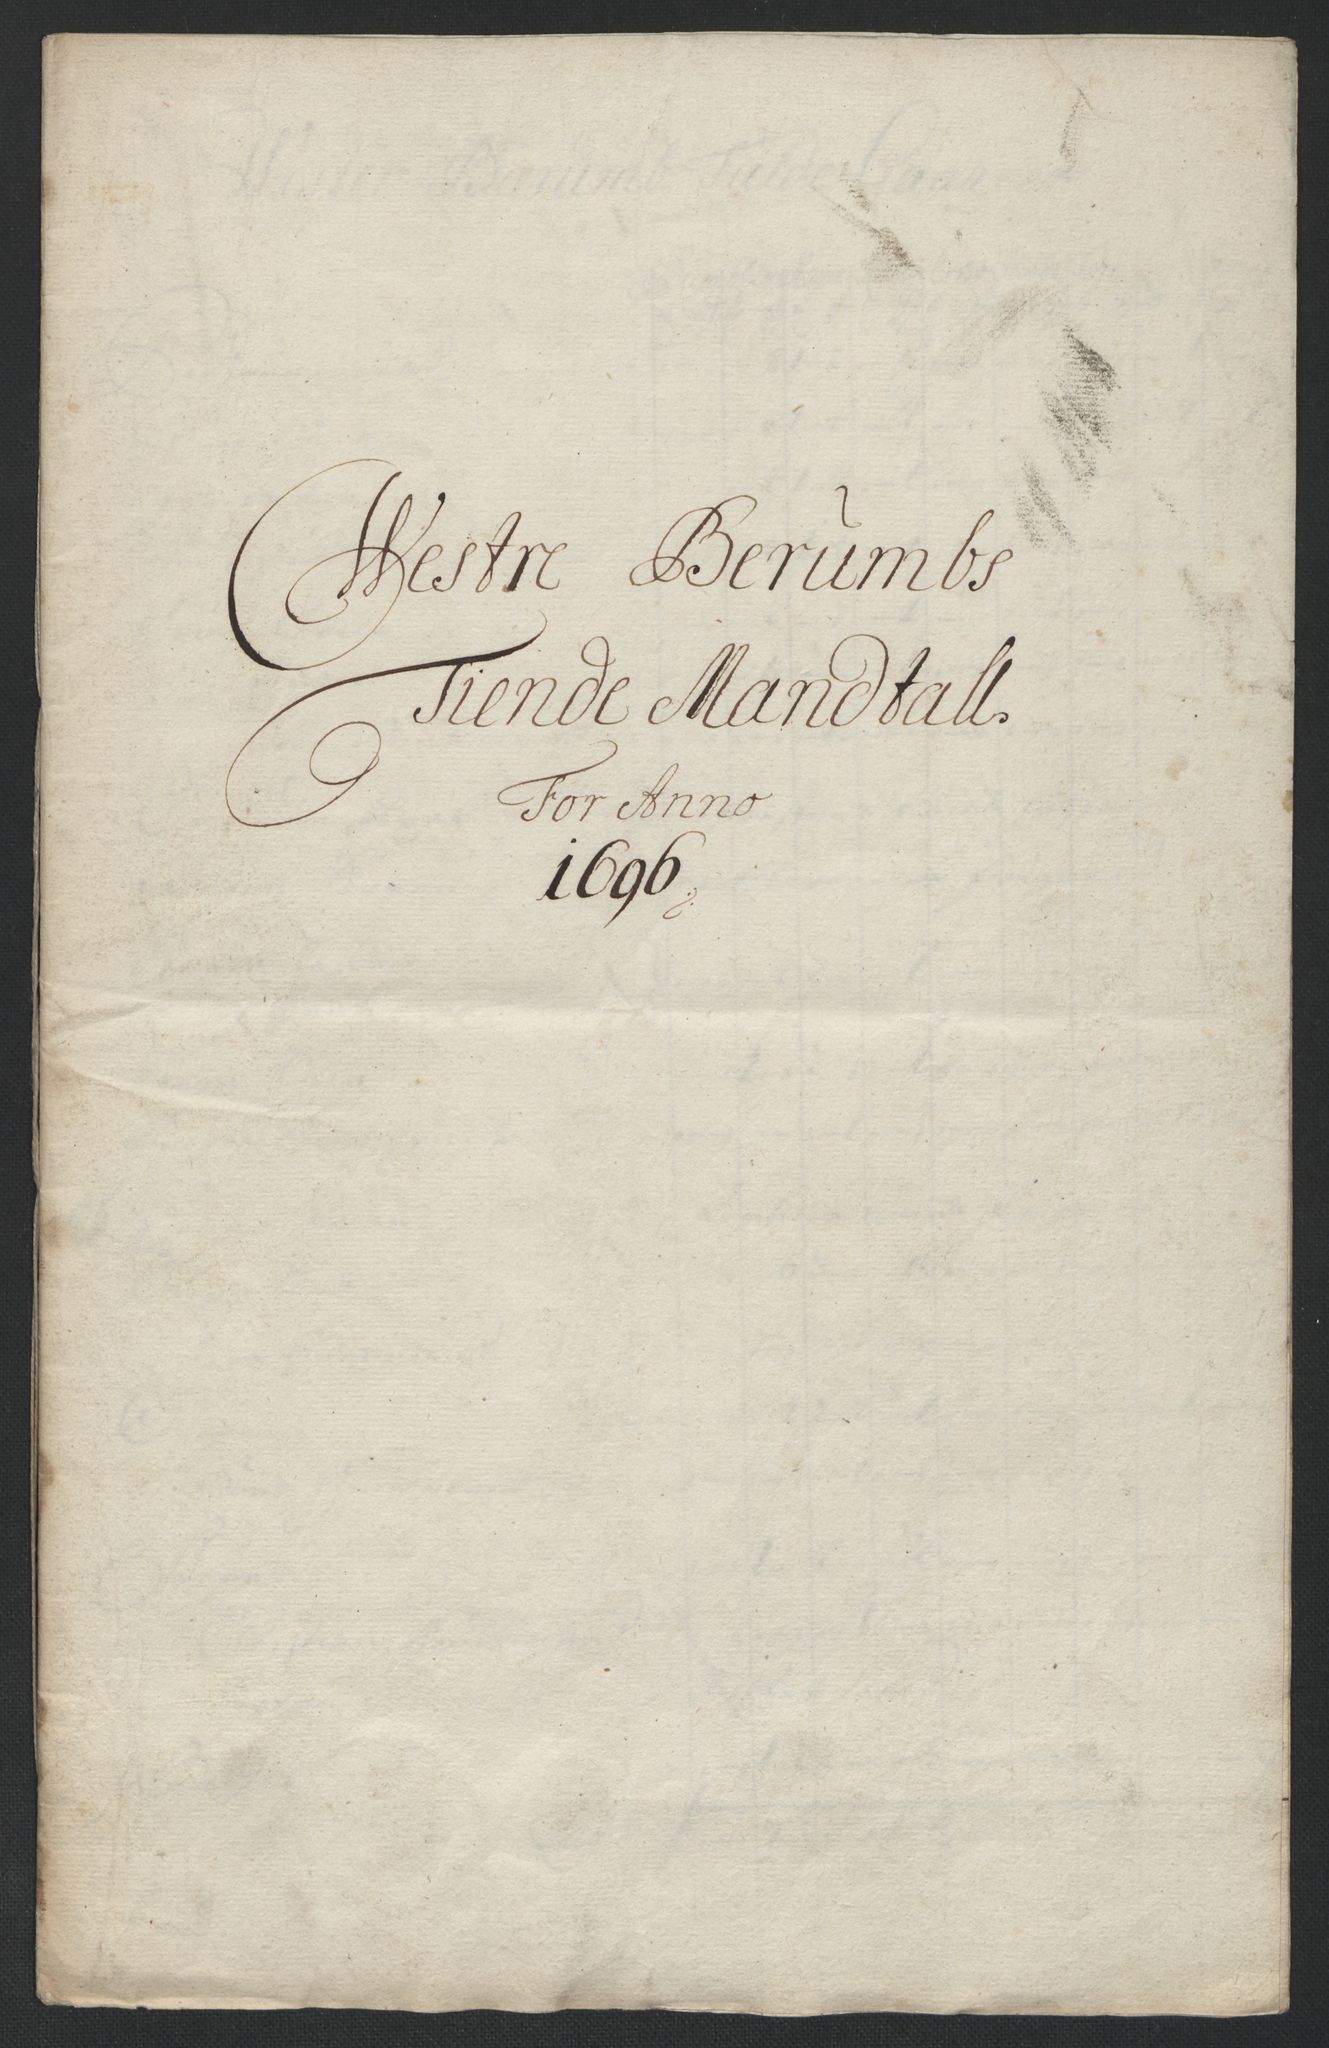 Westre Berŭmbs
Tiende Mandtall.
For Anno
1696